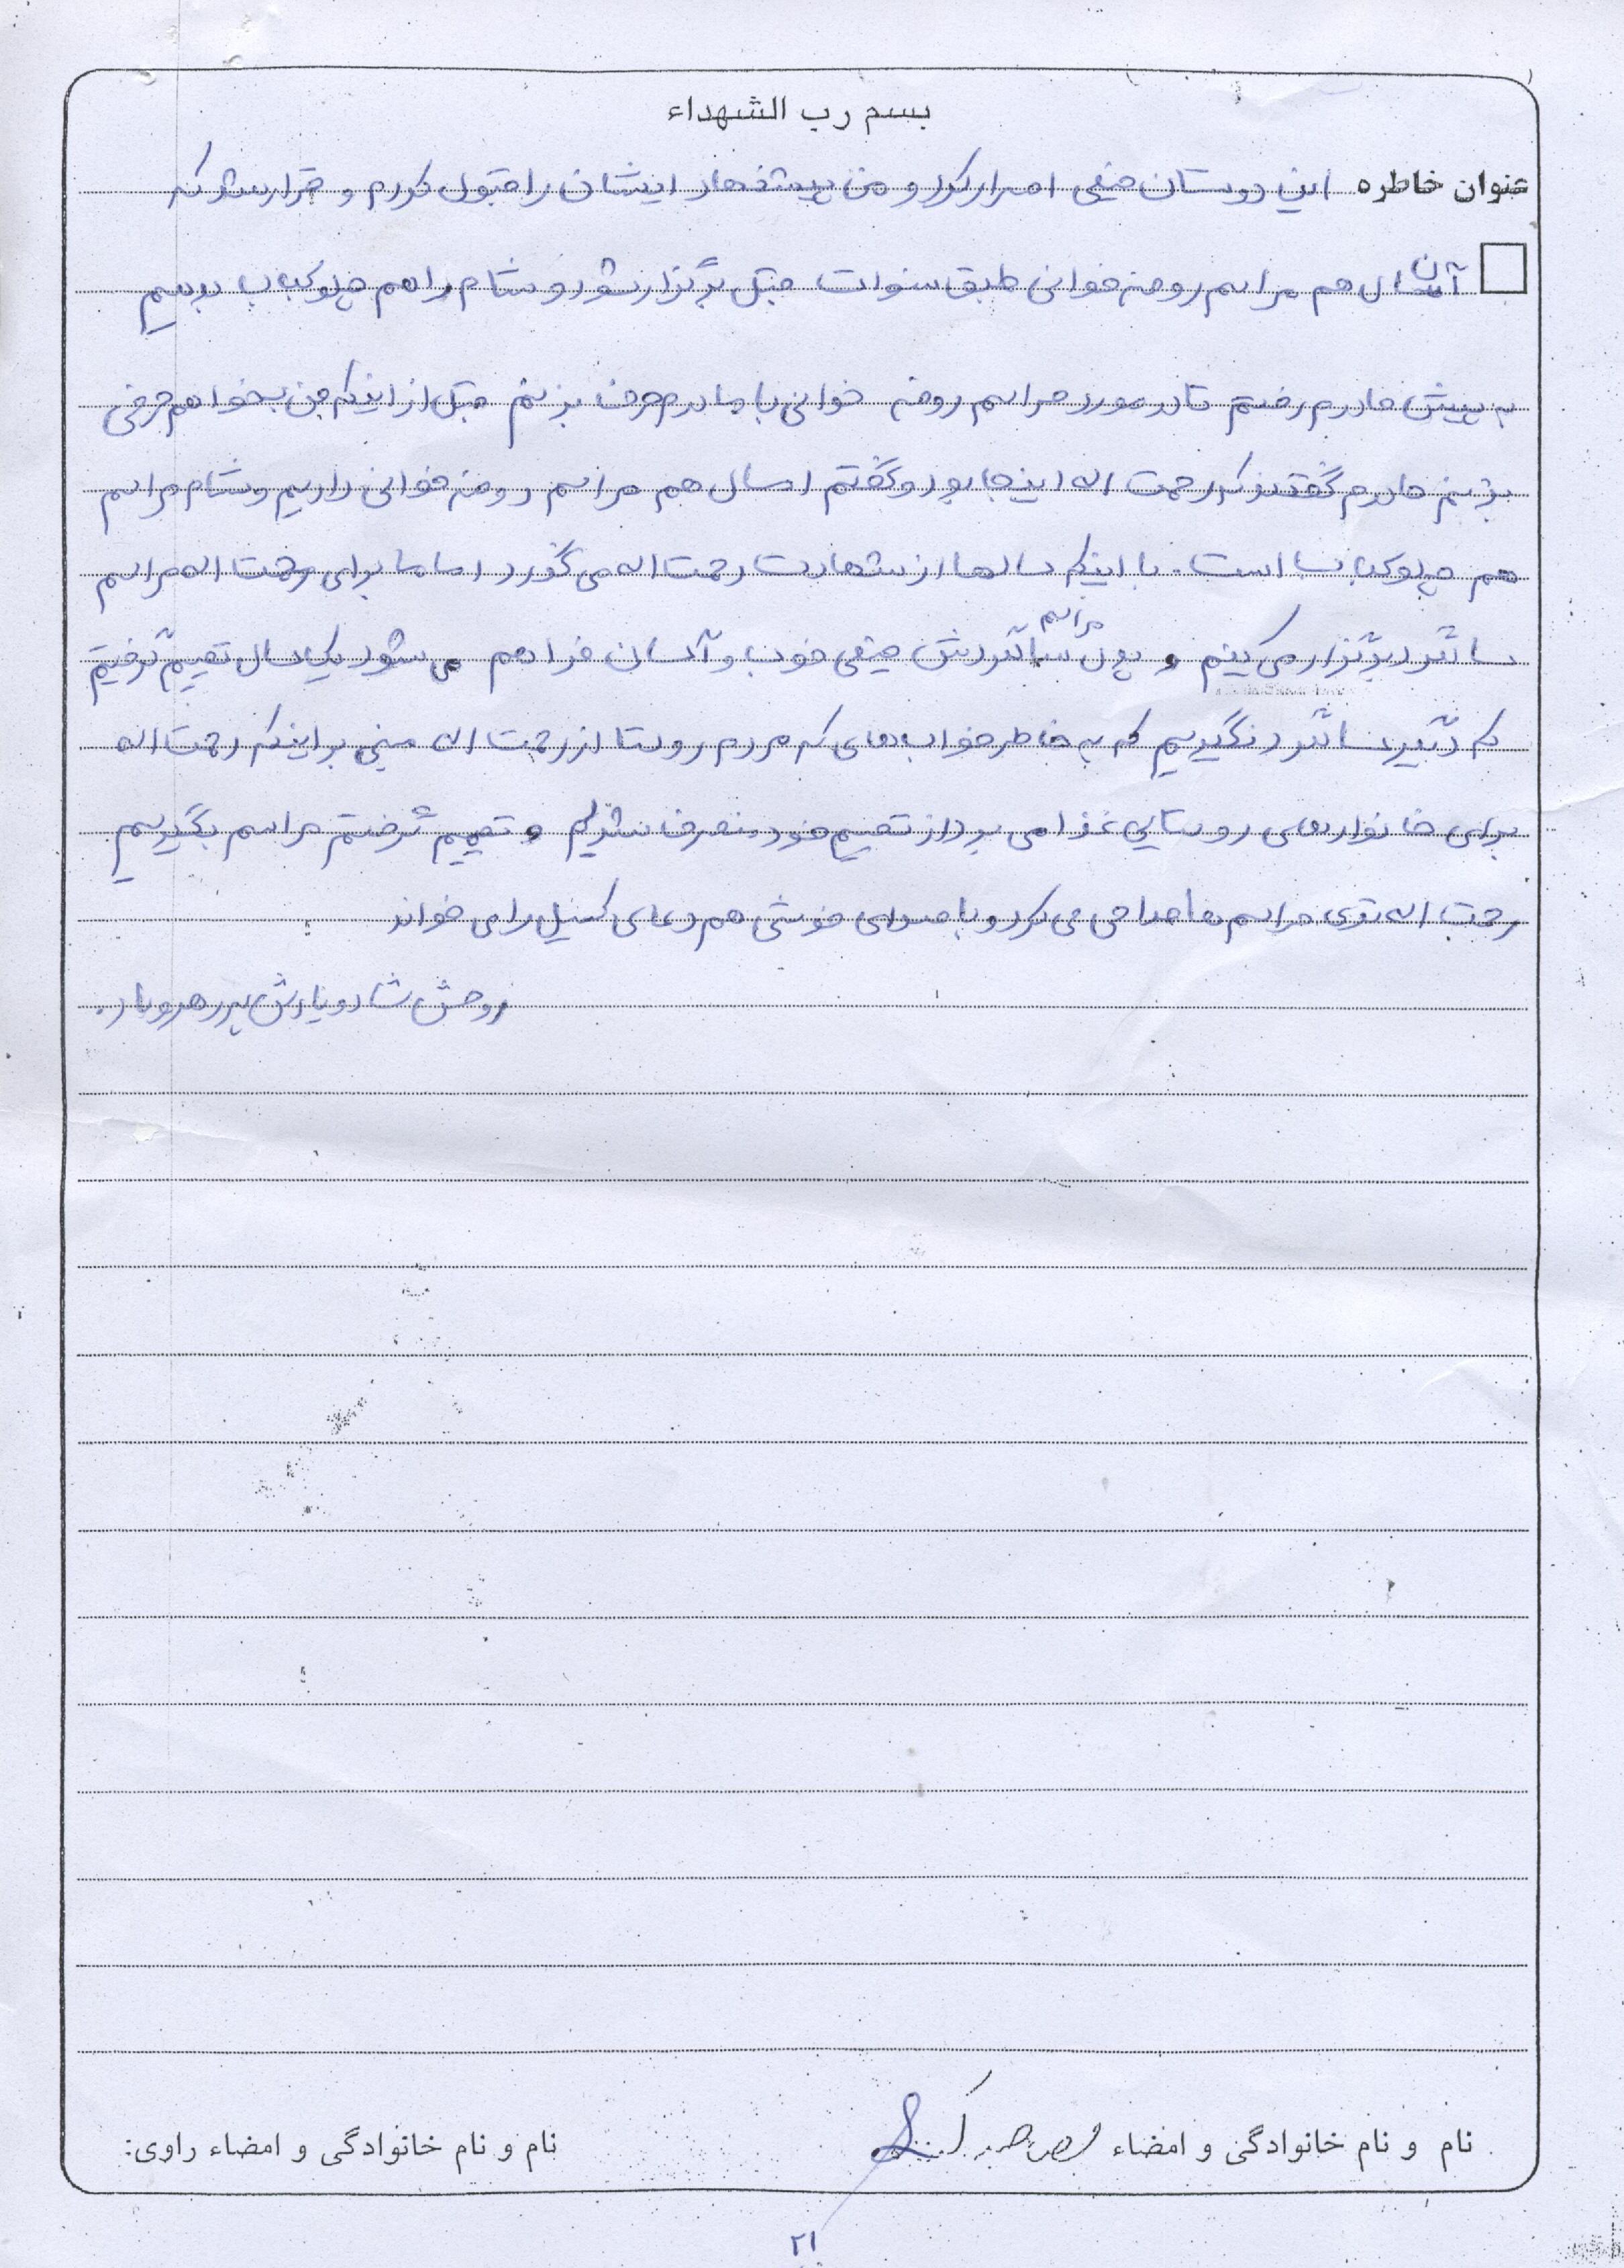 بسم رب الشهداء
عنوان خاطره این دوستان خیلی اصرار کرد و من پیشنهاد ایشان را قبول کردم و قرار شد که
آن سال هم مراسم روضه خوانی طبق سنوات قبل برگزار شود و شام را هم چلوکباب بدهیم
به پیش مادرم رفتم تا در مورد مراسم روضه خوانی با مادرم حرف بزنم قبل از اینکه من بخواهم حرفی
بزنم مادرم گفتند که رحمت اله اینجا بود و گفتم امسال هم مراسم روضه خوانی داریم و شام مراسم
هم چلوکباب است. با اینکه سالها از شهادت رحمت اله می گذرد اما ما برای رحمت اله مراسم
سالگرد برگزار می کنیم و پول مراسم سالگردش خیلی خوب و آسان فراهم می شود یک سال تصمیم گرفتیم
که دیگر سالگرد نگیریم که به خاطر خواب های که مردم روستا از رحمت اله مبنی بر اینکه رحمت اله
برای خانوارهای روستایی غذا می برد از تصمیم خود منصرف شدیم و تصمیم گرفتم مراسم بگیریم
رحمت اله توی مراسم ها مداحی می کرد و با صدای خوشی هم دعای کمیل را می خواند
روحش شاد و یادش پر رهرو باد.
نام و نام خانوادگی و امضاء
نام و نام خانوادگی و امضاء راوی:
۲۱